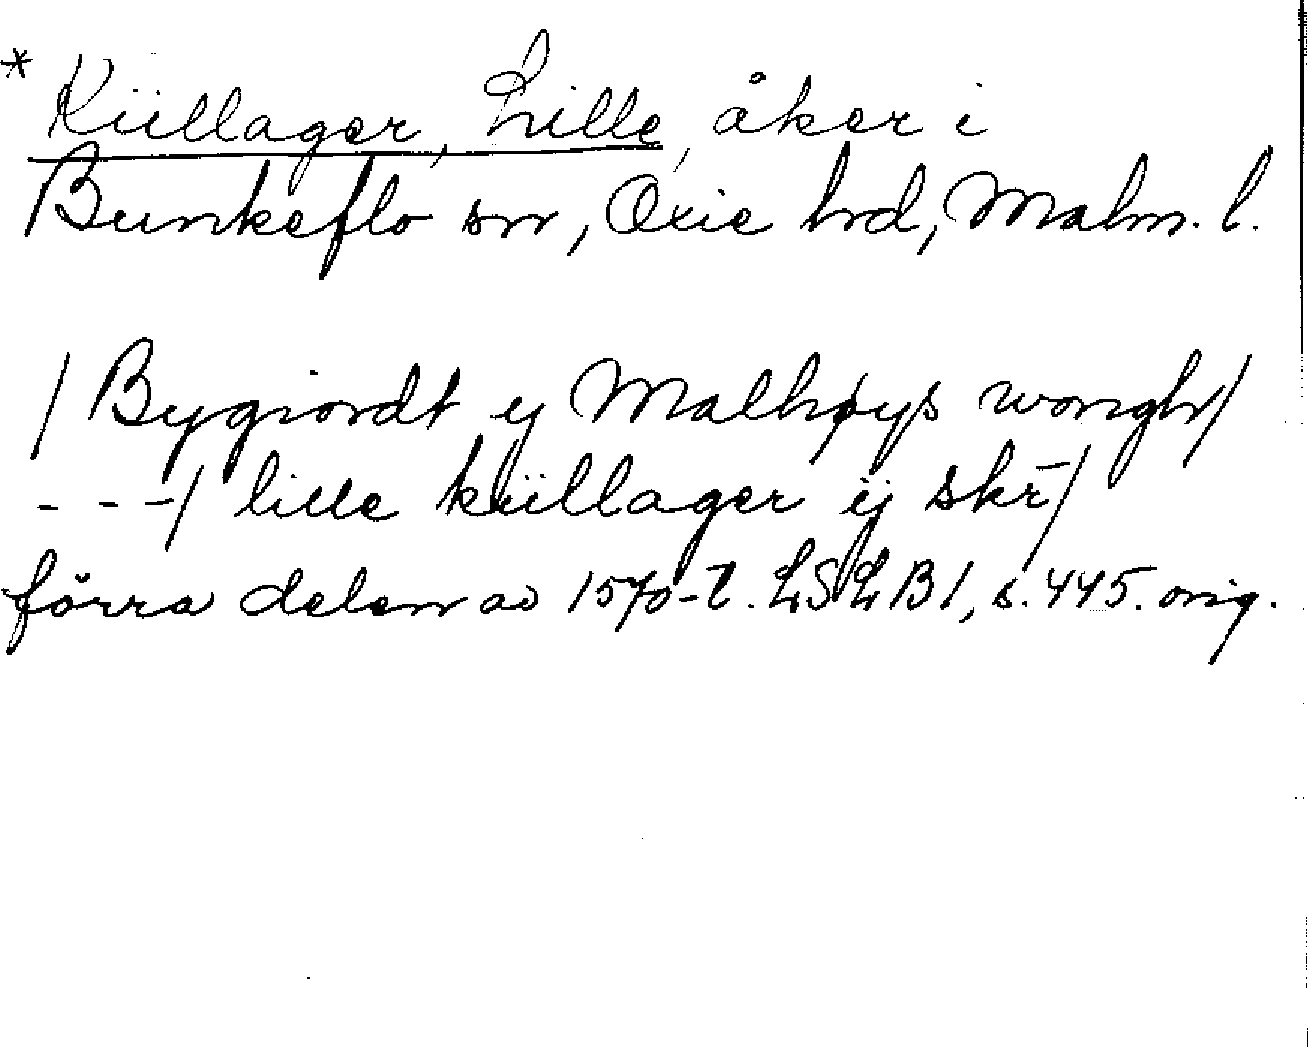 * Küllager, Lille, åker i
Bunkeflo sn, Oxie hd, Malm. l.
/ Bygiordt ij Malhøys wongh/
- - -/ lille küllager ij skr̄/
förra delen av 1570-t. LSLB1, s. 445. orig.